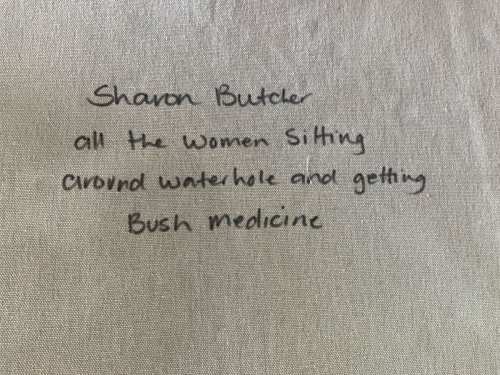 Sharon Butcher
all the women Sitting
around waterhole and getting
Bush medicine